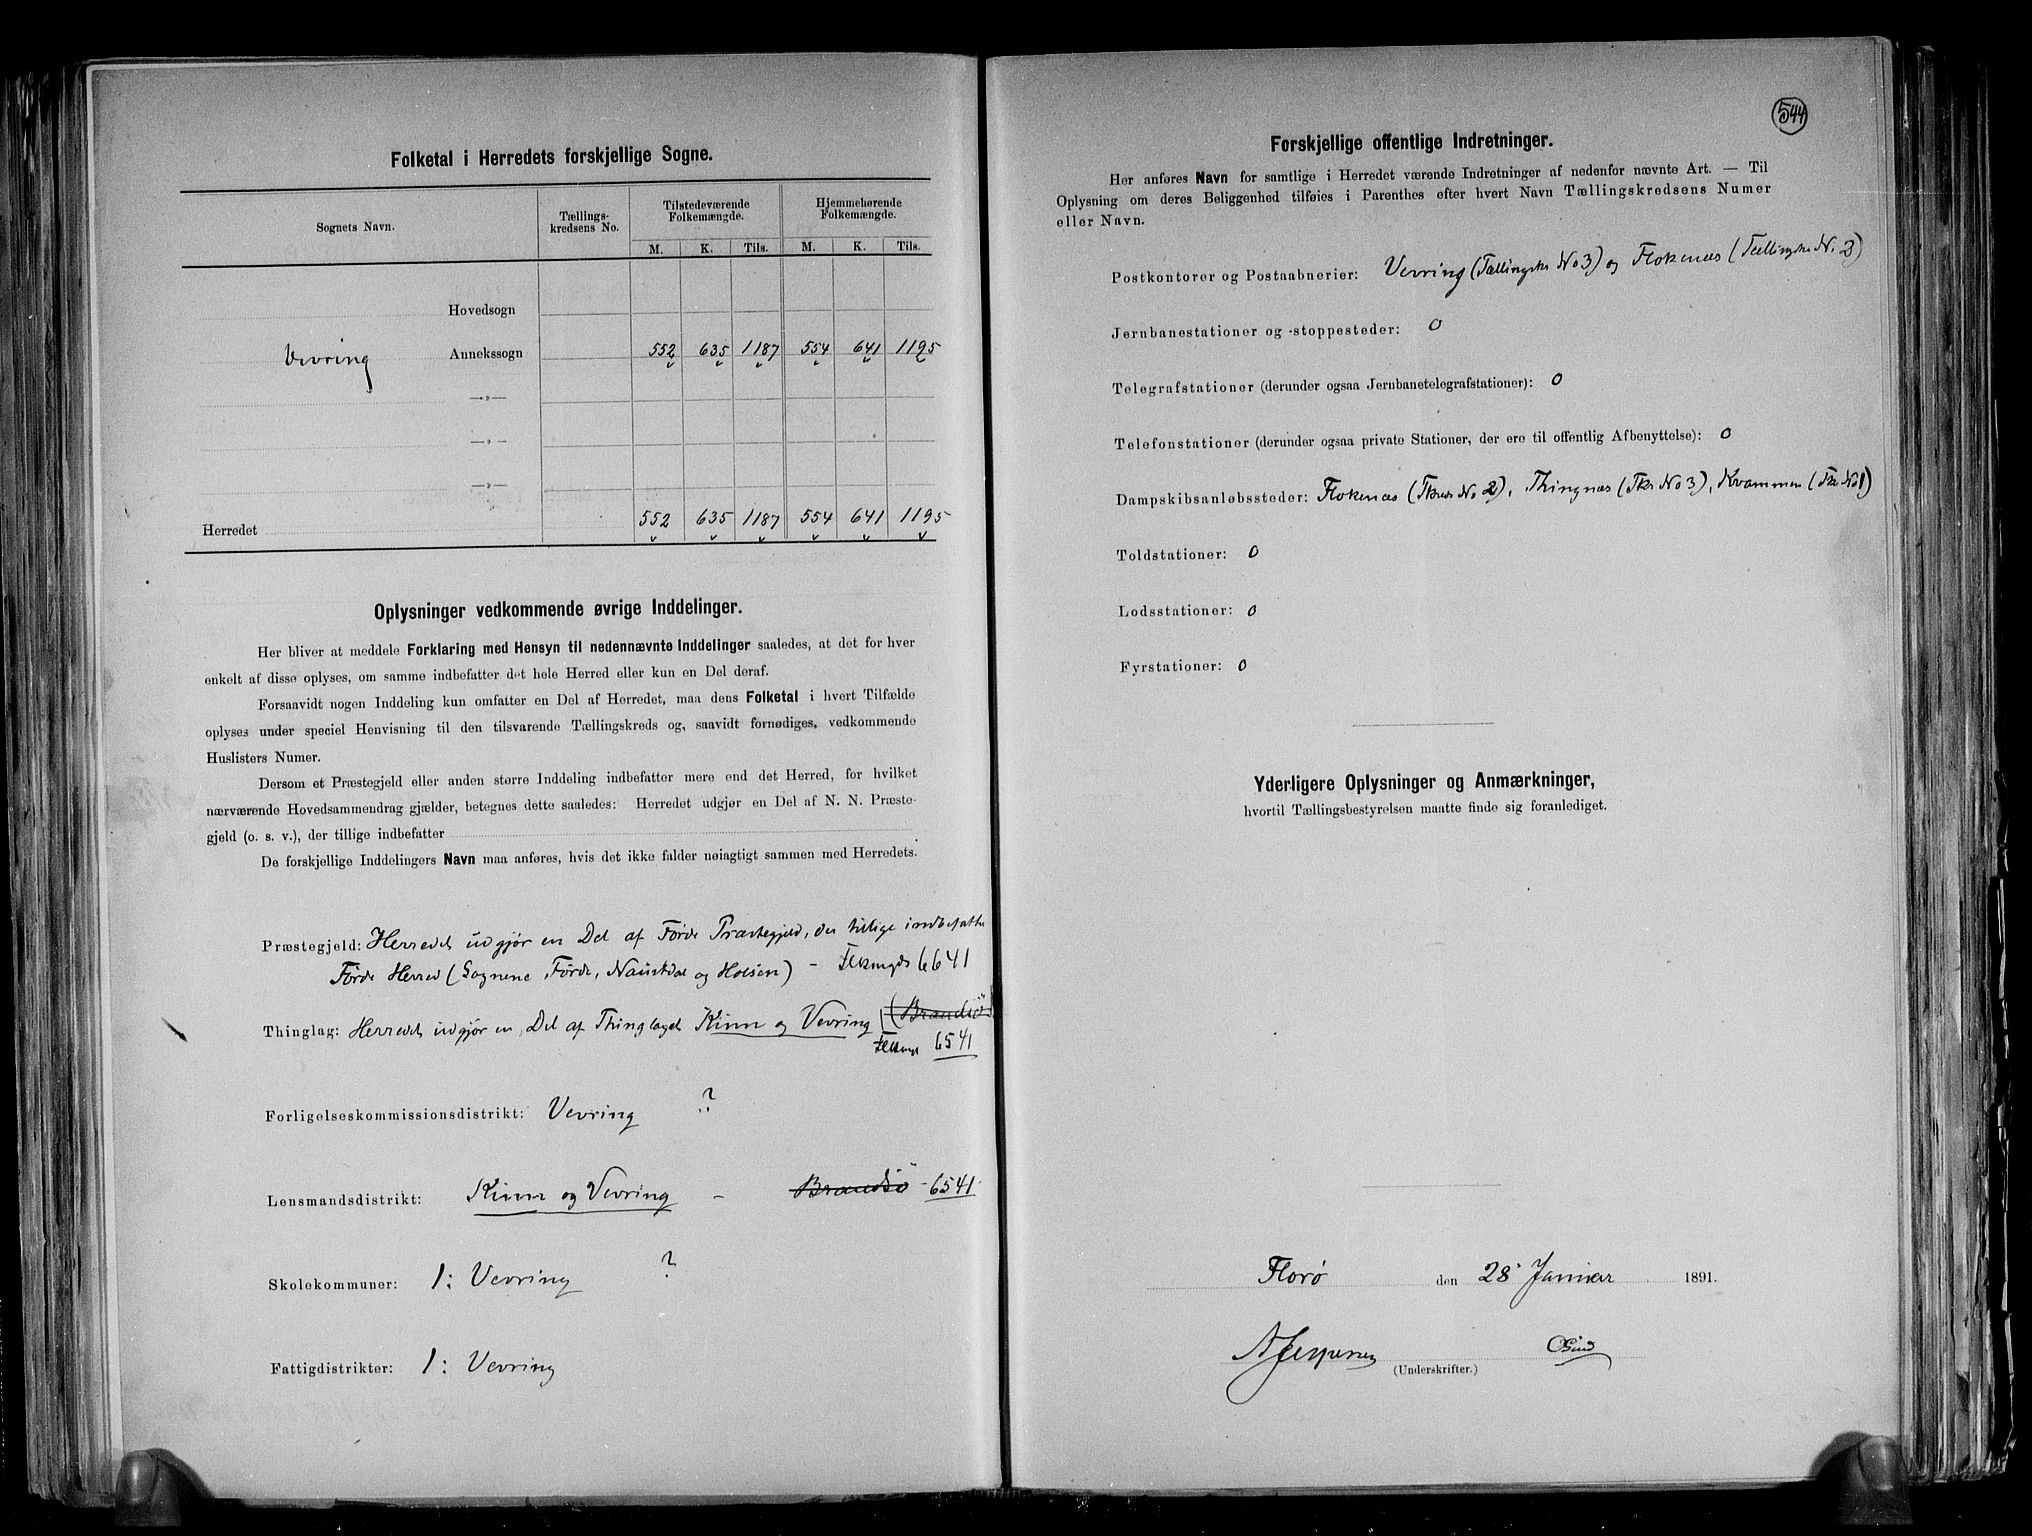 Folketal i Herredets forskjellige Sogne.
Sognets Navn.
Tællings-
kredsens No.
Tilstedeværende
Folkemængde.
Hjemmehørende
Folkemængde.
M. K. Tils. M. K. Tils.
Hovedsogn
Vevring Annekssogn 552 635 1187 554 641 1195
—»—
—»—
—»—
Herredet 552 635 1187 554 641 1195
Oplysninger vedkommende øvrige Inddelinger.
Her bliver at meddele Forklaring med Hensyn til nedennævnte Inddelinger saaledes, at det for hver
enkelt af disse oplyses, om samme indbefatter det hele Herred eller kun en Del deraf.
Forsaavidt nogen Inddeling kun omfatter en Del af Herredet, maa dens Folketal i hvert Tilfælde
oplyses under speciel Henvisning til den tilsvarende Tællingskreds og, saavidt fornødiges, vedkommende
Huslisters Numer.
Dersom et Præstegjeld eller anden større Inddeling indbefatter mere end det Herred, for hvilket
nærværende Hovedsammendrag gjælder, betegnes dette saaledes: Herredet udgjør en Del af N. N. Præste-
gjeld (o. s. v.), der tillige indbefatter
De forskjellige Inddelingers Navn maa anføres, hvis det ikke falder nøiagtigt sammen med Herredets.
Præstegjeld: Herredet udgjør en Del af Førde Præstegjeld, der tillige indbefatter
Førde Herred (Sognene Førde, Naustdal og Holsen) – 6641
Thinglag: Herredet udgjør en Del af Thinglaget Kinn og Vevring (Brandsö)
6541
Forligelseskommissionsdistrikt: Vevring ?
Lensmandsdistrikt: Kinn og Vevring – Brandsö - 6541.
Skolekommuner: 1: Vevring ?
Fattigdistrikter: 1: Vevring
544
Forskjellige offentlige Indretninger.
Her anføres Navn for samtlige i Herredet værende Indretninger af nedenfor nævnte Art. — Til
Oplysning om deres Beliggenhed tilføies i Parenthes efter hvert Navn Tællingskredsens Numer
eller Navn.
Postkontorer og Postaabnerier: Vevring (Tællingskr No 3) og Flokenæs (Tællingskr N. 2)
Jernbanestationer og -stoppesteder: 0
Telegrafstationer (derunder ogsaa Jernbanetelegrafstationer): 0
Telefonstationer (derunder ogsaa private Stationer, der ere til offentlig Afbenyttelse): 0
Dampskibsanløbssteder: Flokenæs (Tkreds No 2), Thingnæs (Tkr No 3), Kvammen (Tkr No 1)
Toldstationer: 0
Lodsstationer: 0
Fyrstationer: 0
Yderligere Oplysninger og Anmærkninger,
hvortil Tællingsbestyrelsen maatte finde sig foranlediget.
Florø den 28 Januar 1891.
(Underskrifter.)